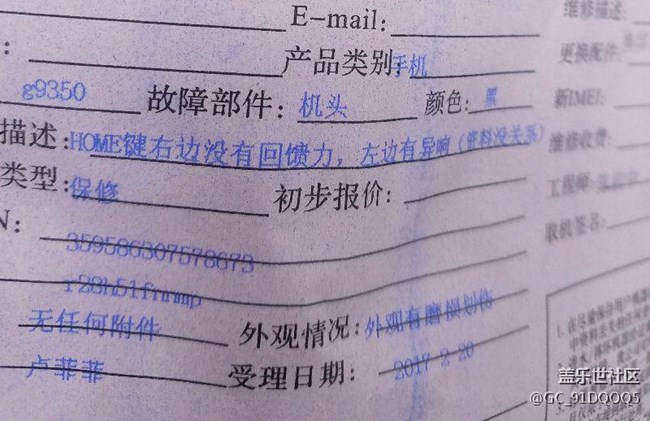 E-mail:
维修描述:
产品类别:手机
更换配件:
g9350 故障部件: 机头 颜色: 黑
新IMEI:
描述:HOME键右边没有回馈力，左边有异响(资料没关系)
维修收费:
类型:保修 初步报价:
工程师:
N: 359586307578673
取机签名:
r28h51fnnmp
无任何附件 外观情况:外观有磨损划伤
卢菲菲 受理日期: 2017 2 20
盖乐世社区
@GC_91DOOO5